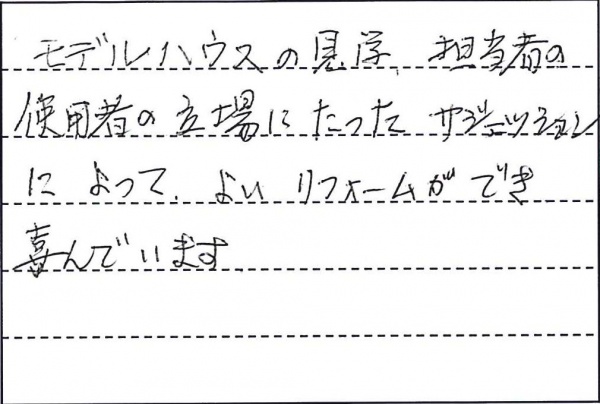 モデルハウスの見学、担当者の
使用者の立場にたった サジェッション
によって、よい リフォームができ
喜んでいます